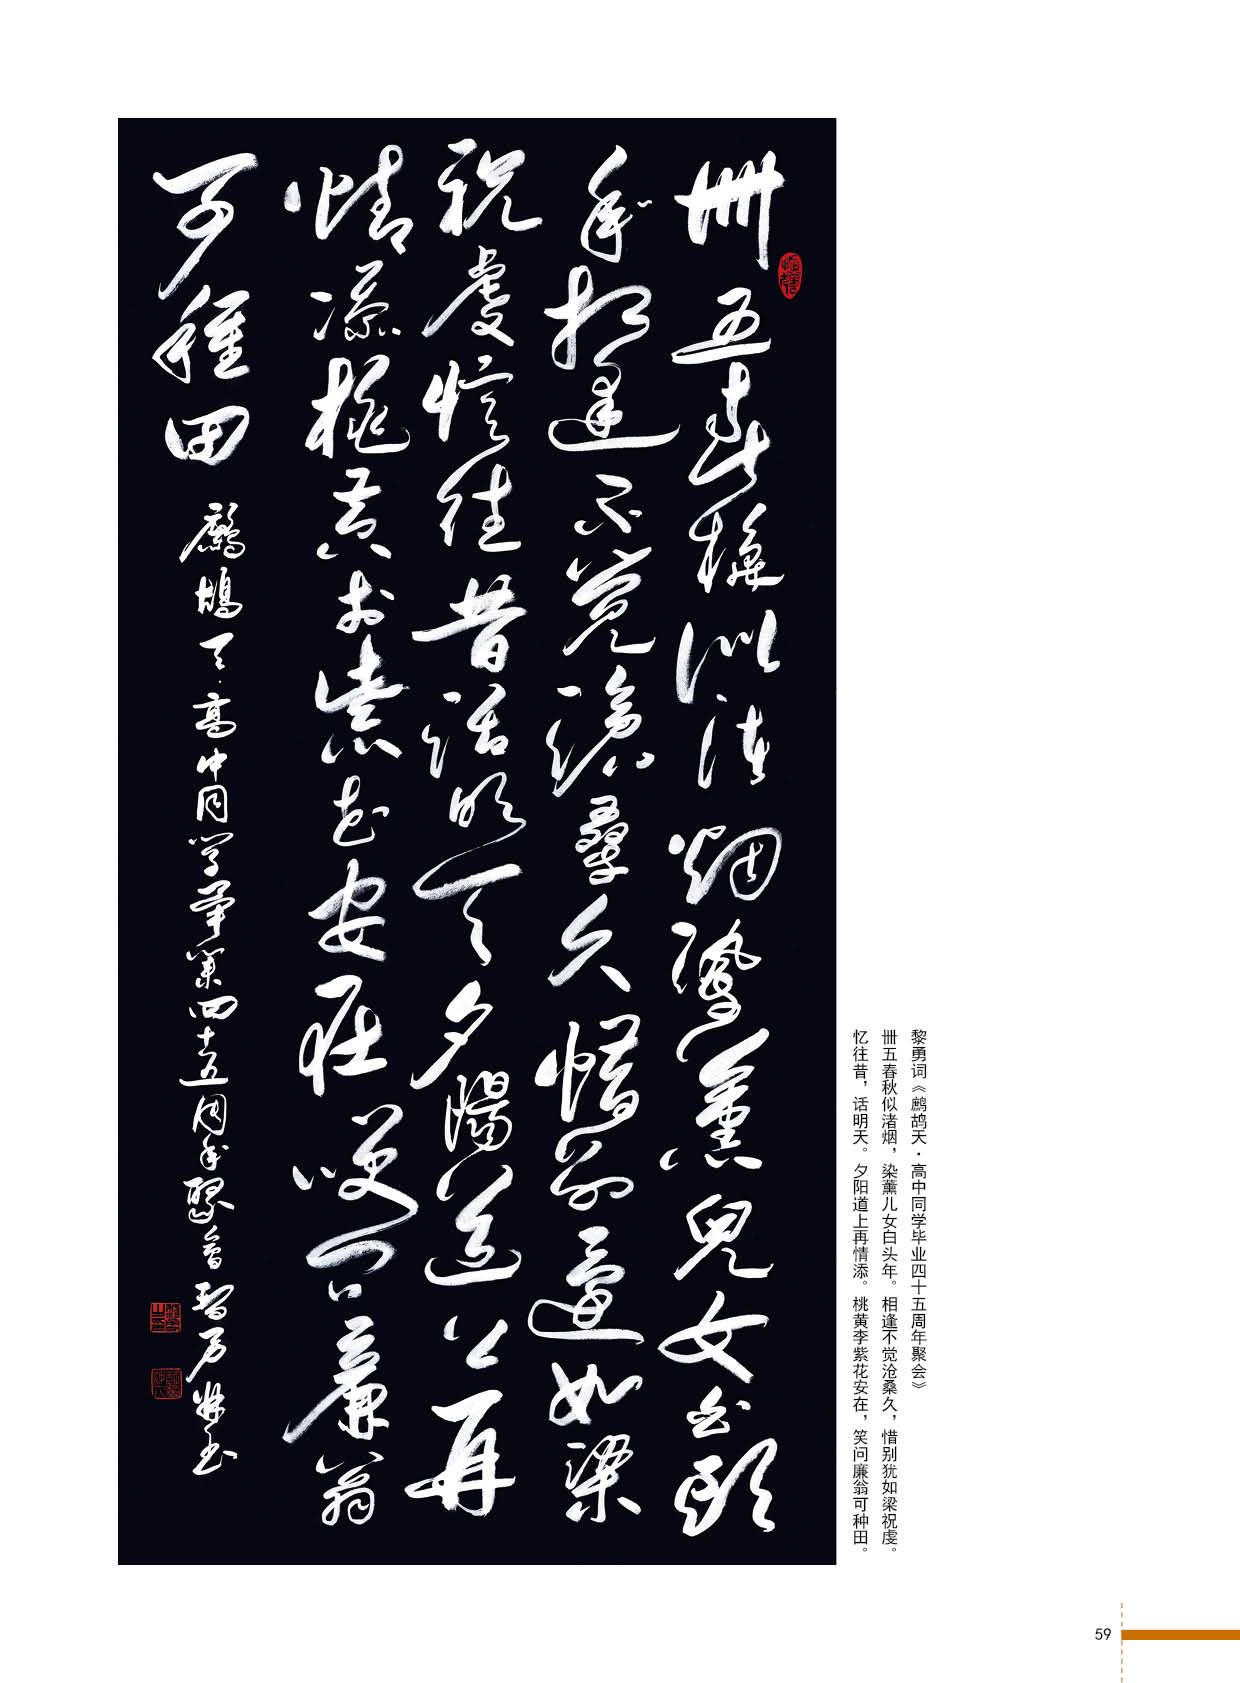 卌五春秋似渚烟染薰兒女白頭
年相逢不觉滄桑久惜别猶如梁
祝虔憶往昔話明天夕陽道上再
情添桃黄李紫花安在笑问廉翁
可種田
鷓鴣天·高中同学畢業四十五周年聚會
黎勇词《鹧鸪天·高中同学毕业四十五周年聚会》
卌五春秋似渚烟，染薰儿女白头年。相逢不觉沧桑久，惜别犹如梁祝虔。
忆往昔，话明天。夕阳道上再情添。桃黄李紫花安在，笑问廉翁可种田。
59